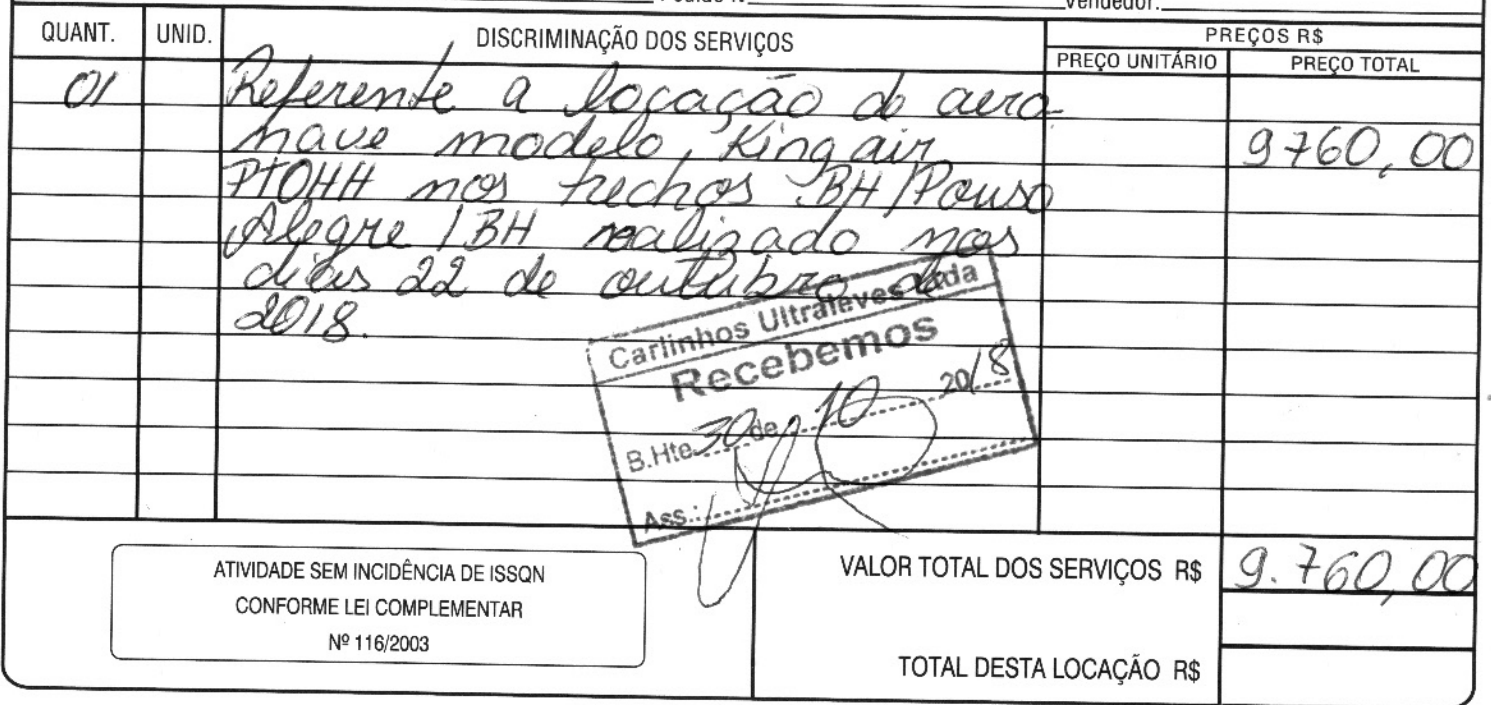 Vendedor:
QUANT. UNID. DISCRIMINAÇÃO DOS SERVIÇOS PREÇOS R$
PREÇO UNITÁRIO PREÇO TOTAL
01 Referente a locação de aero-
nave modelo, King air 9760,00
PTOHH nos trechos BH/Pouso
Alegre / BH realizado nos
dias 22 de outubro de
2018.
Carlinhos Ultraleves Ltda
Recebemos
B.Hte 30 de 10 2018
Ass.:
ATIVIDADE SEM INCIDÊNCIA DE ISSQN
CONFORME LEI COMPLEMENTAR
Nº 116/2003
VALOR TOTAL DOS SERVIÇOS R$ 9.760,00
TOTAL DESTA LOCAÇÃO R$